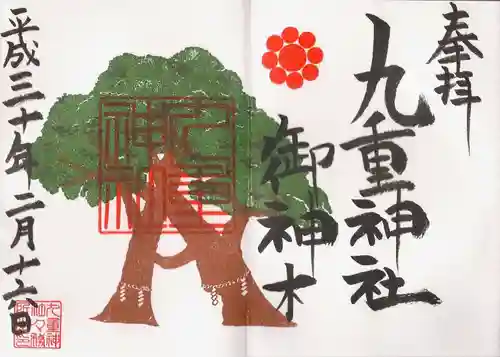 奉拝
九重神社
御神木
九重神社
平成三十年二月十六日